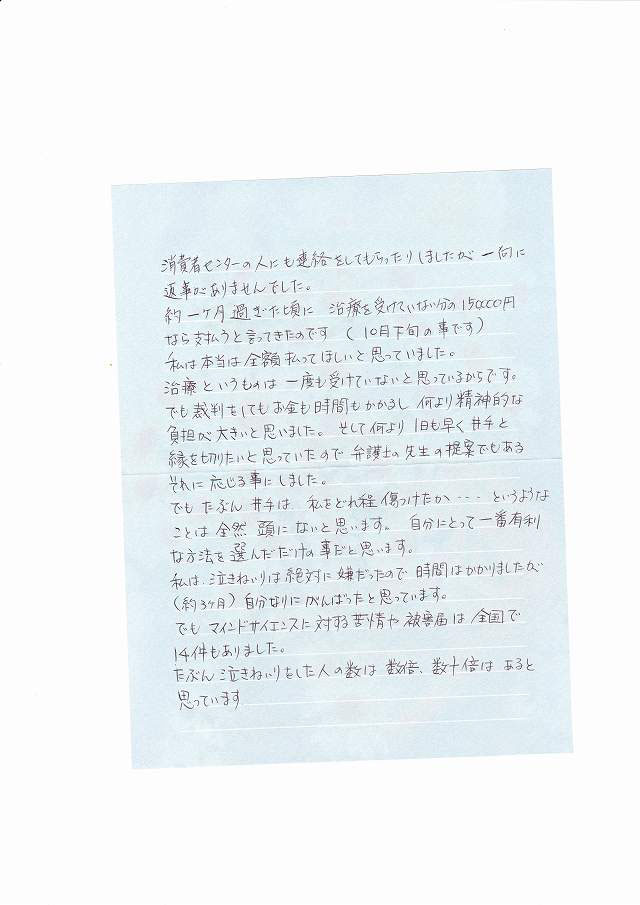 消費者センターの人にも連絡をしてもらったりしましたが 一向に
返事がありませんでした。
約一ヶ月過ぎた頃に 治療を受けていない分の150000円
なら支払うと言ってきたのです (10月下旬の事です)
私は本当は全額払ってほしいと思っていました。
治療というものは一度も受けていないと思っているからです。
でも裁判をしてもお金も時間もかかるし 何より精神的な
負担が大きいと思いました。そして何より 1日も早く井手と
縁を切りたいと思っていたので弁護士の先生の提案でもある
それに応じる事にしました。
でもたぶん井手は、私をどれ程傷つけたか・・・というような
ことは全然頭にないと思います。自分にとって一番有利
な方法を選んだだけの事だと思います。
私は、泣きねいりは絶対に嫌だったので時間はかかりましたが
(約3ヶ月)自分なりにがんばったと思っています。
でもマインドサイエンスに対する苦情や被害届は全国で
14件もありました。
たぶん泣きねいりをした人の数は数倍、数十倍はあると
思っています